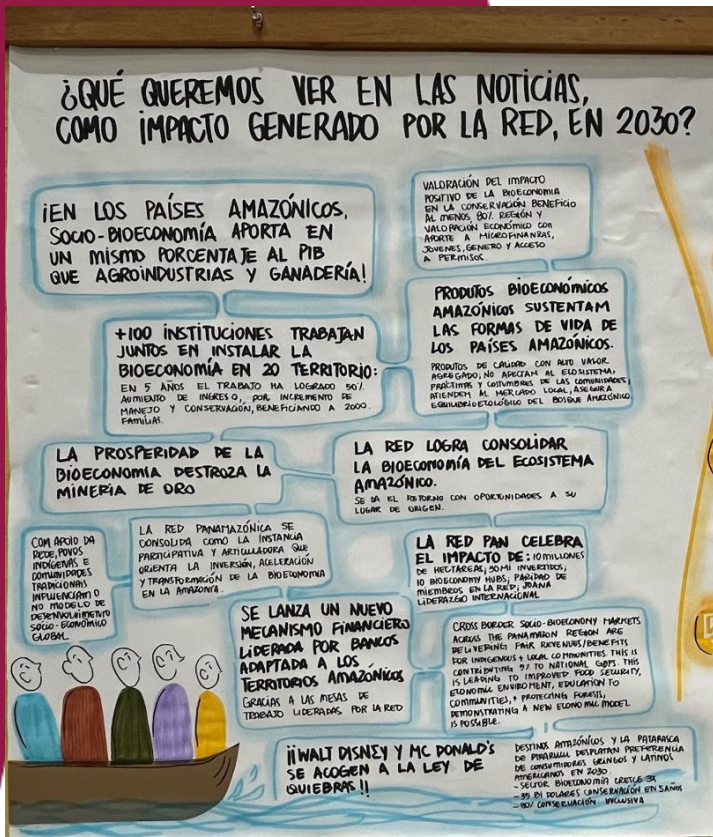 ¿QUÉ QUEREMOS VER EN LAS NOTICIAS,
COMO IMPACTO GENERADO POR LA RED, EN 2030?
¡EN LOS PAÍSES AMAZÓNICOS,
SOCIO-BIOECONOMÍA APORTA EN
UN MISMO PORCENTAJE AL PIB
QUE AGROINDUSTRIAS Y GANADERÍA!
VALORACIÓN DEL IMPACTO
POSITIVO DE LA BIOECONOMIA
EN LA CONSERVACIÓN BENEFICIO
AL MENOS, 80% REGIÓN Y
VALORACIÓN ECONÓMICO CON
APORTE A MICROFINANZAS,
JOVENES, GENERO Y ACCESO
A PERMISOS.
+100 INSTITUCIONES TRABAJAN
JUNTOS EN INSTALAR LA
BIOECONOMÍA EN 20 TERRITORIO:
EN 5 AÑOS EL TRABAJO HA LOGRADO 50%
AUMIENTO DE INGRESO, POR INCREMENTO DE
MANEJO Y CONSERVACIÓN, BENEFICIANDO A 2000
FAMILIAS.
PRODUTOS BIOECONÓMICOS
AMAZÓNICOS SUSTENTAM
LAS FORMAS DE VIDA DE
LOS PAÍSES AMAZÓNICOS.
PRODUTOS DE CALIDAD CON ALTO VALOR
AGREGADO; NO AFECTAM AL ECOSISTEMA,
PRÁCTIMAS Y COSTUMBRES DE LAS COMUNIDADES;
ATIENDEM AL MERCADO LOCAL; ASEGURA
EQUILIBRIO ECOLÓGICO DEL BOSQUE AMAZÓNICO
LA PROSPERIDAD DE LA
BIOECONOMIA DESTROZA LA
MINERIA DE ORO
LA RED LOGRA CONSOLIDAR
LA BIOECONOMÍA DEL ECOSISTEMA
AMAZÓNICO.
SE DA EL RETORNO CON OPORTUNIDADES A SU
LUGAR DE ORIGEN.
COM APOIO DA
REDE, POVOS
INDÍGENAS E
COMUNIDADES
TRADICIONAIS
INFLUENCIAM O
NO MODELO DE
DESENVOLVIMENTO
SOCIO-ECONÔMICO
GLOBAL.
LA RED PANAMAZÓNICA SE
CONSOLIDA COMO LA INSTANCIA
PARTICIPATIVA Y ARTICULADORA QUE
ORIENTA LA INVERSIÓN, ACELERACIÓN
Y TRANSFORMACIÓN DE LA BIOECONOMIA
EN LA AMAZONÍA.
LA RED PAN CELEBRA
EL IMPACTO DE: 10 MILLONES
DE HECTAREAS; 50MI INVERTIDOS;
10 BIOECONOMY HUBS; PARIDAD DE
MIEMBROS EN LA RED; JOANA
LIDERAZGO INTERNACIONAL
SE LANZA UN NUEVO
MECANISMO FINANCIERO
LIDERADA POR BANCOS
ADAPTADA A LOS
TERRITORIOS AMAZÓNICOS
GRACIAS A LAS MESAS DE
TRABAJO LIDERADAS POR LA RED
CROSS BORDER SOCIO-BIOECONOMY MARKETS
ACROSS THE PANAMAZON REGION ARE
DELIVERING FAIR REVENUES/BENEFITS
FOR INDIGENOUS + LOCAL COMMUNITIES. THIS IS
CONTRIBUTING 5% TO NATIONAL GDPS. THIS
IS LEADING TO IMPROVED FOOD SECURITY,
ECONOMIC ENVIROMENT, EDUCATION TO
COMMUNITIES, + PROTECING FORESTS,
DEMONSTRATING A NEW ECONOMIC MODEL
IS POSSIBLE.
¡¡WALT DISNEY Y MC DONALD'S
SE ACOGEN A LA LEY DE
QUIEBRAS!!
DESTINOS AMAZÓNICOS Y LA PATARASCA
DE PIRARUCU DESPLATAN PREFERENCIA
DE CONSUMIDORES GRINGOS Y LATINOS
AMERICANOS EN 2030.
-SECTOR BIOECONOMÍA CRECLE 3X
-35 BI DOLARES CONSERVACIÓN EN 5 AÑOS
-80% CONSERVACIÓN INCLUSIVA